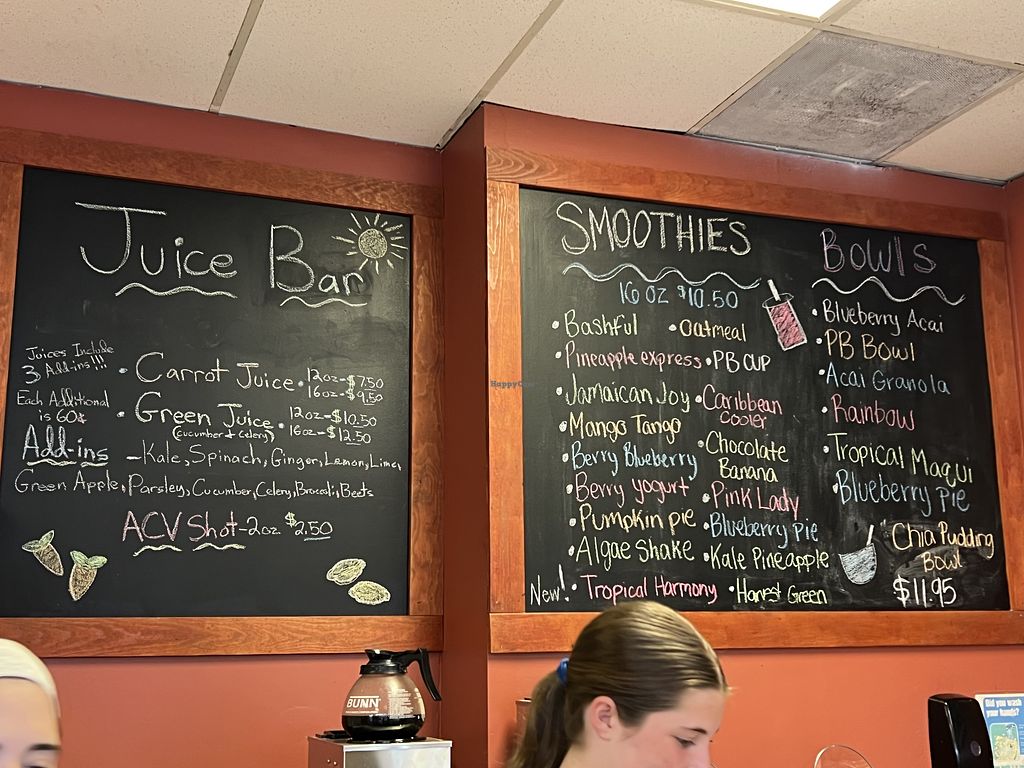 Juice Bar
Juices Include
3 Add-ins!!!
Each Additional
is 60¢
• Carrot Juice • 12oz-$7.50
16oz-$9.50
• Green Juice • 12oz-$10.50
(cucumber + celery) 16oz-$12.50
Add-ins - Kale, Spinach, Ginger, Lemon, Lime,
Green Apple, Parsley, Cucumber, Celery, Brocoli, Beets
ACV Shot-2oz $2.50
SMOOTHIES
16 oz $10.50
• Bashful
• Pineapple express
• Jamaican Joy
• Mango Tango
• Berry Blueberry
• Berry yogurt
• Pumpkin pie
• Algae Shake
New! • Tropical Harmony
• Oatmeal
• PB CUP
• Caribbean
Cooler
• Chocolate
Banana
• Pink Lady
• Blueberry Pie
• Kale Pineapple
• Honest Green
BOWlS
• Blueberry Acai
• PB Bowl
• Acai Granola
• Rainbow
• Tropical Maqui
• Blueberry Pie
• Chia Pudding
Bowl
$11.95
HappyCow
BUNN
Did you wash
your hands?